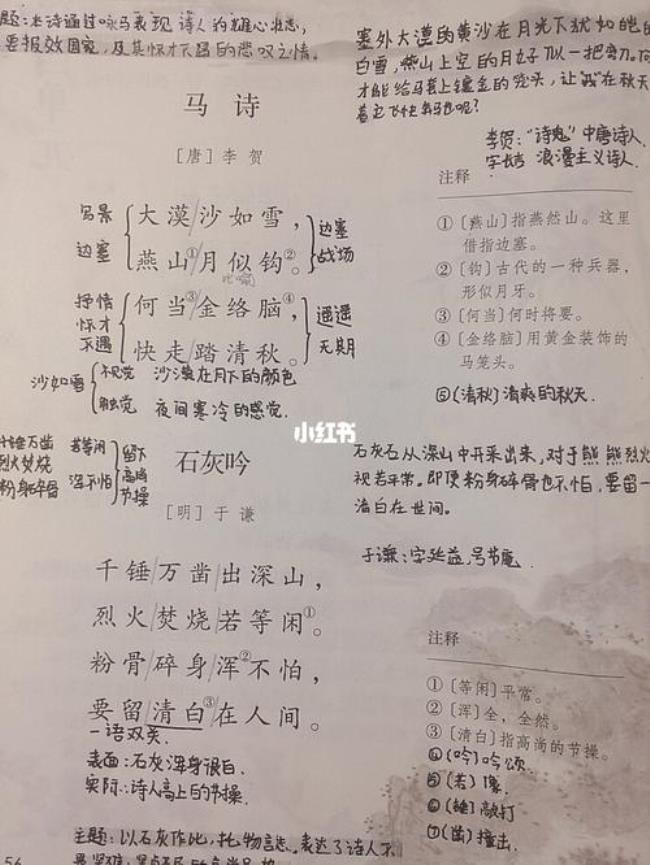 题:本诗通过咏马表现诗人的雄心壮志,
要报效国家,及其怀才不遇的感叹之情。
塞外大漠的黄沙在月光下犹如皑
白雪,燕山上空的月好似一把弯刀。何
才能给马套上镀金的笼头,让我在秋天
着它飞快奔驰呢?
马 诗
[唐] 李 贺
李贺:“诗鬼”中唐诗人
字长吉 浪漫主义诗人
写景
边塞
大漠/沙如雪,
燕山①/月似钩②。
比喻
边塞
战场
抒情
怀才
不遇
何当③/金络脑④,
快走/踏清秋。
遥遥
无期
沙如雪
视觉 沙漠在月下的颜色
触觉 夜间寒冷的感觉.
注释
①〔燕山〕指燕然山。这里
借指边塞。
②〔钩〕古代的一种兵器,
形似月牙。
③〔何当〕何时将要。
④〔金络脑〕用黄金装饰的
马笼头。
⑤(清秋)清爽的秋天.
千锤万凿
烈火焚烧
粉身碎骨
若等闲
浑不怕
留下
高尚
节操
石灰吟
[明] 于 谦
石灰石从深山中开采出来,对于熊熊烈火
视若平常。即便粉身碎骨也不怕,要留一
清白在世间。
于谦:字廷益,号节庵
千锤/万凿/出深山,
烈火/焚烧/若等闲①。
粉骨/碎身/浑②不怕,
要留/清白③/在人间。
一语双关
表面:石灰浑身很白.
实际:诗人高上的节操.
注释
①〔等闲〕平常。
②〔浑〕全,全然。
③〔清白〕指高尚的节操。
④(吟)吟颂.
⑤(若)像.
⑥(锤)敲打
⑦(凿)撞击.
主题:以石灰作比,托物言志.表达了诗人不
56
小红书